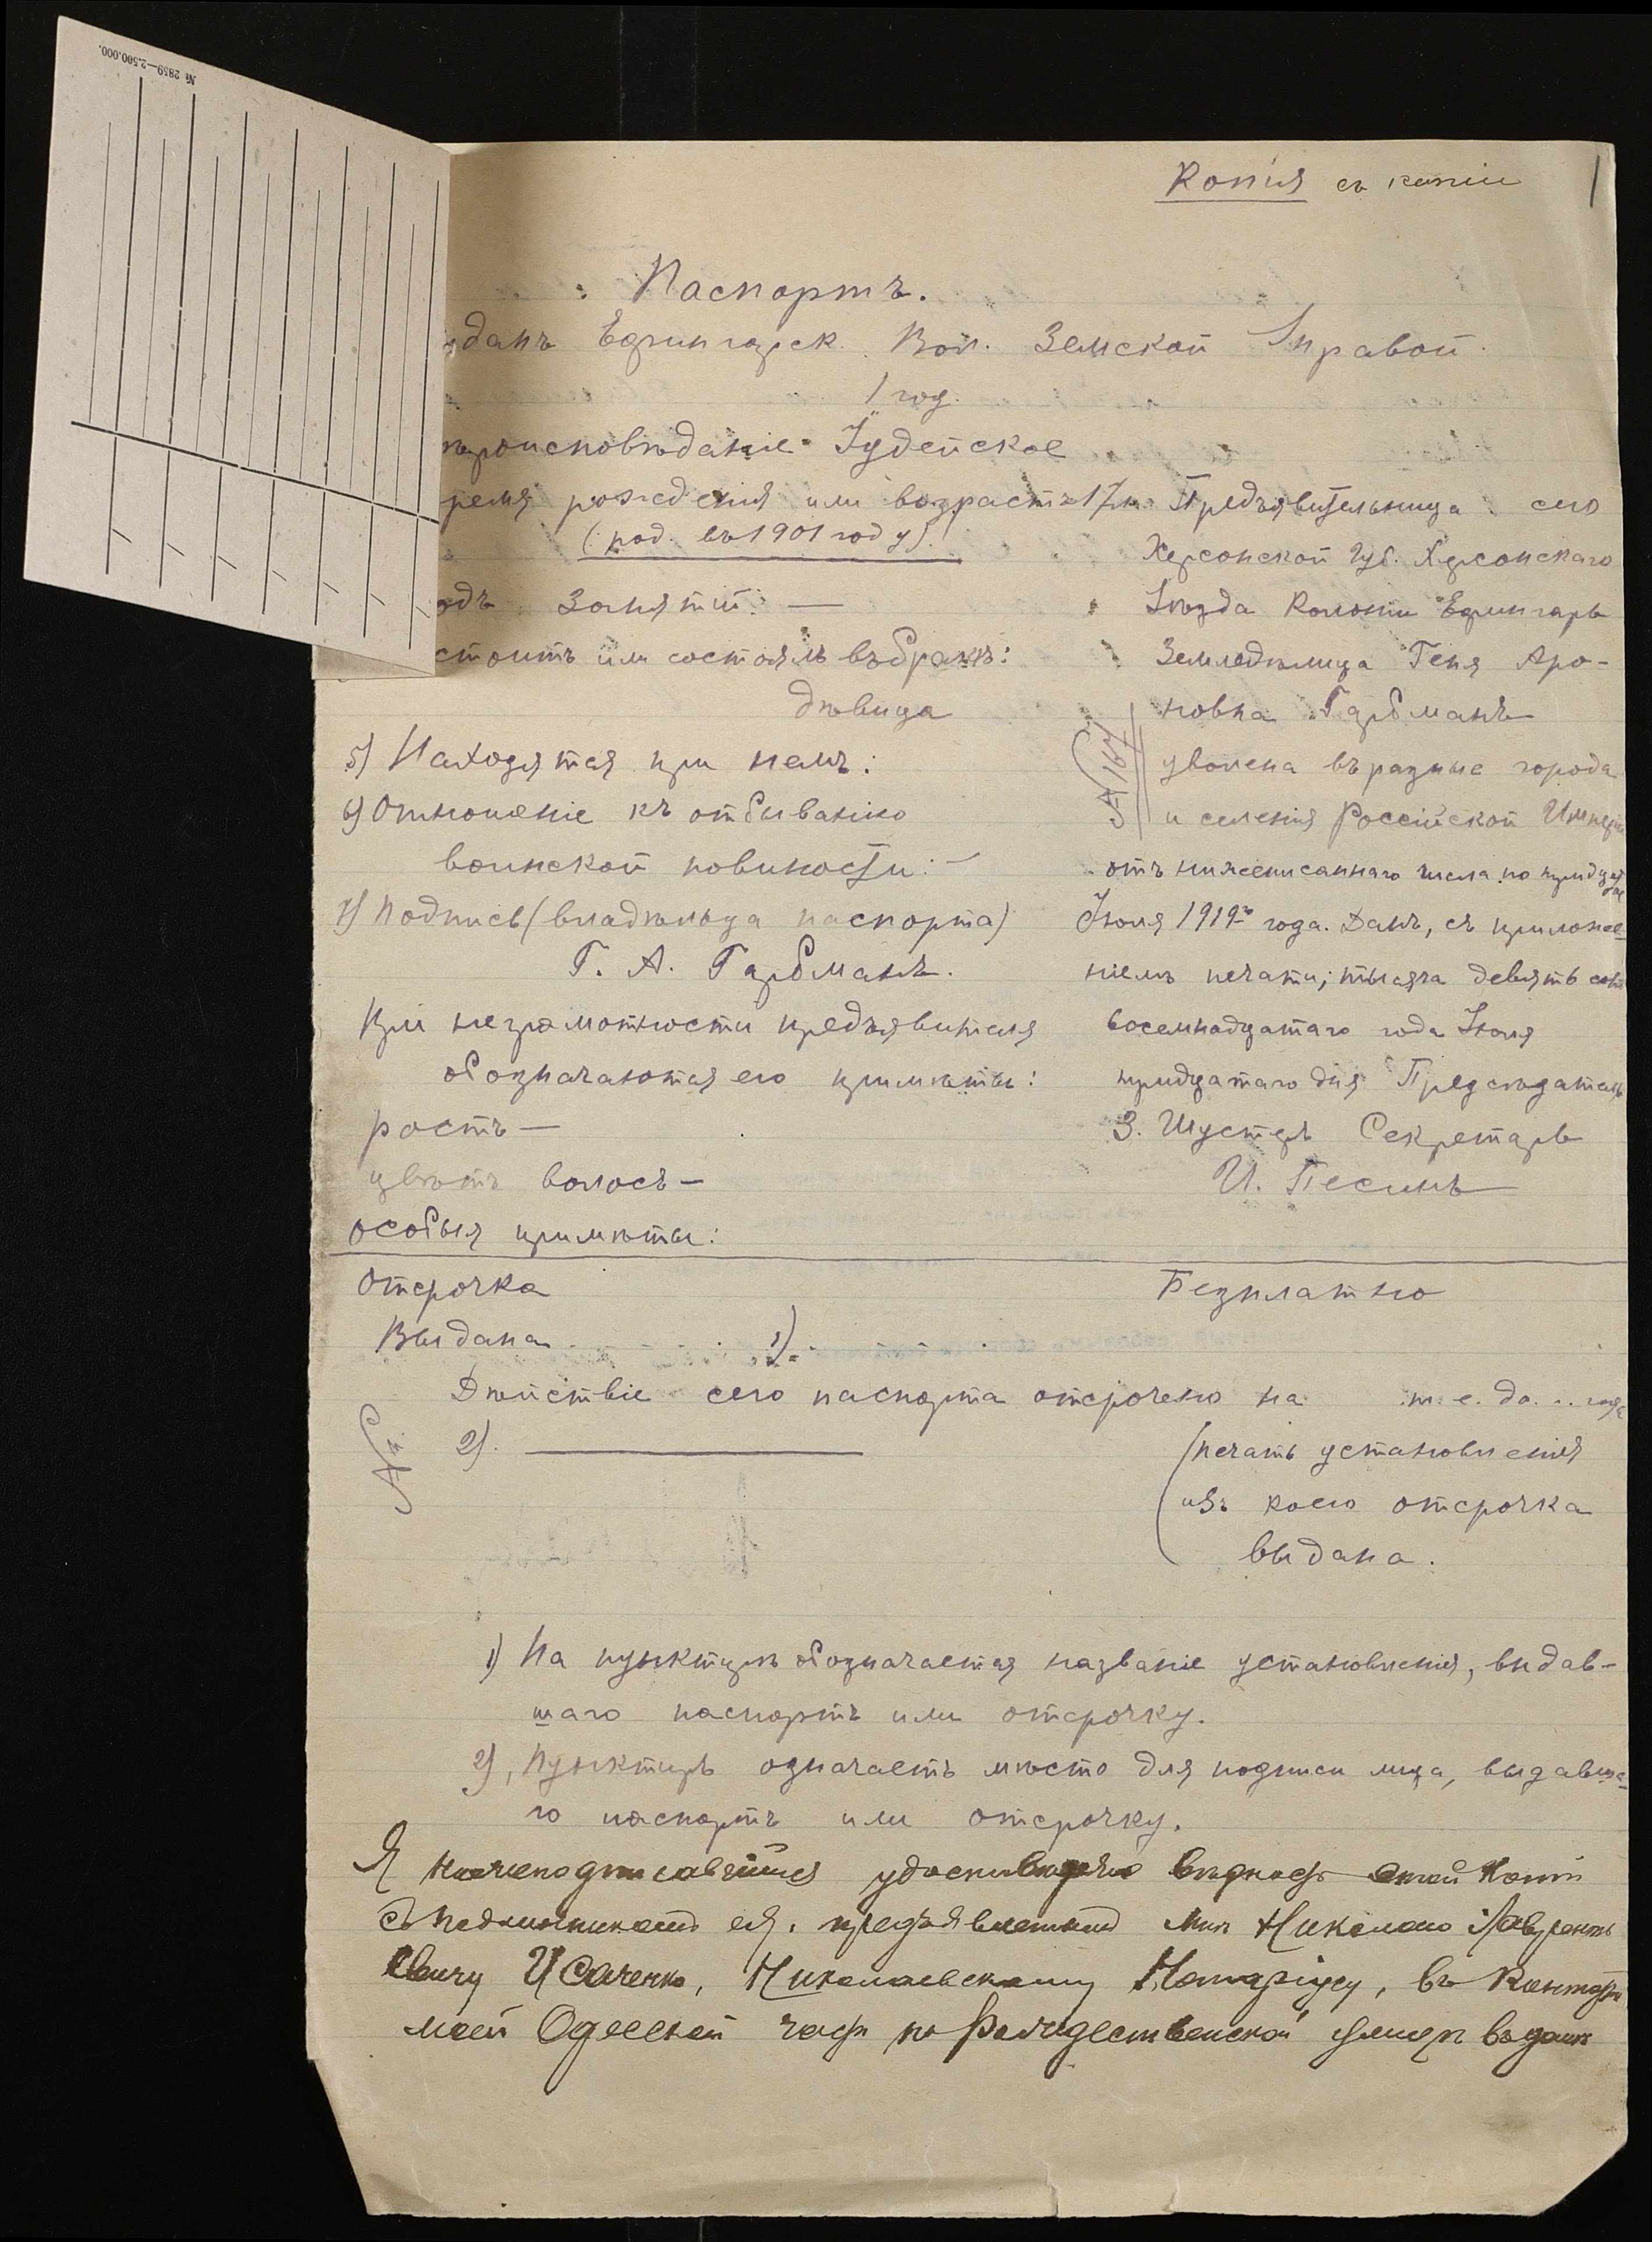 № 2859—2.500.000.
Копія съ копіи
1
Паспортъ.
данъ Ефингарск. Вол. Земской Управой.
1 год.
вѣроисповѣданіе Іудейское
ремя рожденія или возрастъ 17 л.
(род. въ 1901 году).
одъ занятій: —
стоитъ или состоялъ въ бракѣ:
дѣвица
5) Находятся при немъ:
6) Отношеніе къ отбыванію
воинской повиности: —
7) Подпись (владѣльца паспорта)
Г. А. Гарбманъ.
При неграмотности предъявителя
обозначаются его примѣты:
ростъ —
цвѣтъ волосъ —
особыя примѣты:
Предъявительница сего
Херсонской Губ. Херсонскаго
Уѣзда Колоніи Ефингаръ
Земледѣлица Геня Аро-
новна Гарбманъ
№ 167
уволена въ разные города
и селенія Россійской Импер
отъ нижеписаннаго числа по тридцатое
Іюля 1919го года. Данъ, съ приложе-
ніемъ печати; тысяча девятьсот
восемнадцатаго года Іюля
тридцатаго дня Предсѣдатель
З. Шустеръ Секретарь
И. Песинъ
Отсрочка
Безплатно
Выдана 1)
Дѣйствіе сего паспорта отсрочено на т. е. до .. года
№
2). ———
(печать установленія
изъ коего отсрочка
выдана.
1) На пунктирѣ обозначается названіе установленія, выдав-
шаго паспортъ или отсрочку.
2), Пунктиръ означаетъ мѣсто для подписи лица, выдавша-
го паспортъ или отсрочку.
Я нижеподписавшійся удостовѣряю вѣрность этой копіи
съ подлинникомъ ея, предъявленнымъ мнѣ Николаю Лавренть
евичу Исаченко, Николаевскому Нотаріусу, въ конторѣ
моей Одесской части по Рождественской улицѣ въ домѣ